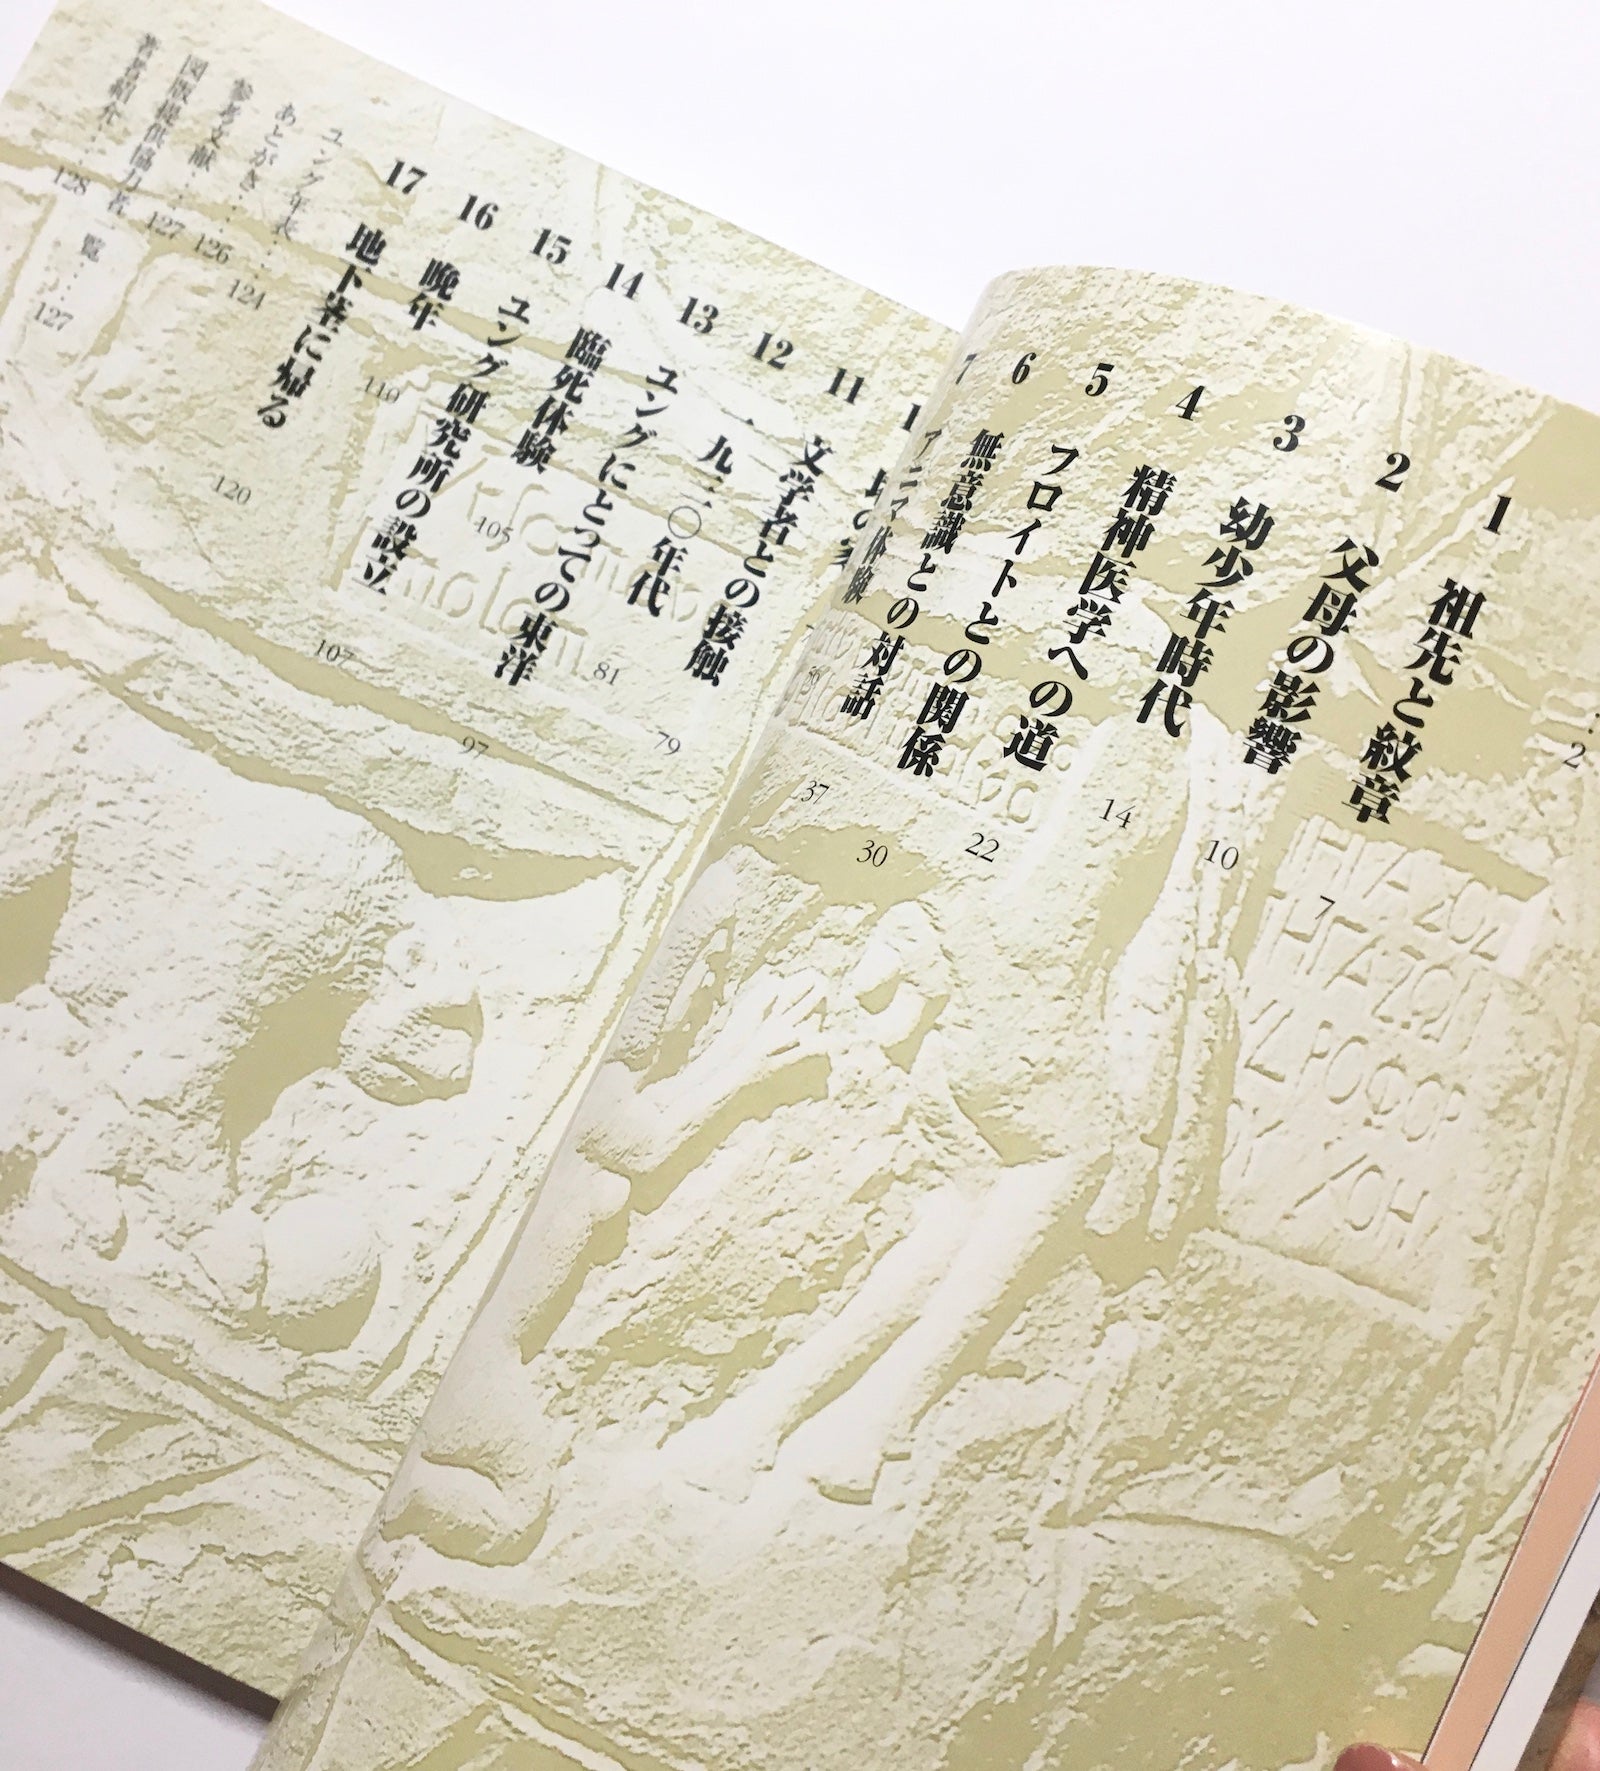 …2
1 祖先と紋章 7
2 父母の影響 10
3 幼少年時代 14
4 精神医学への道 22
5 フロイトとの関係 30
6 無意識との対話 37
7 アニマ体験
11 文学者との接触 79
12 一九三〇年代 81
13 ユングにとっての東洋 97
14 臨死体験 105
15 ユング研究所の設立 107
16 晩年 110
17 地下室に帰る 120
ユング年表…124
あとがき…126
参考文献…127
図版提供協力者一覧…127
著者紹介…128